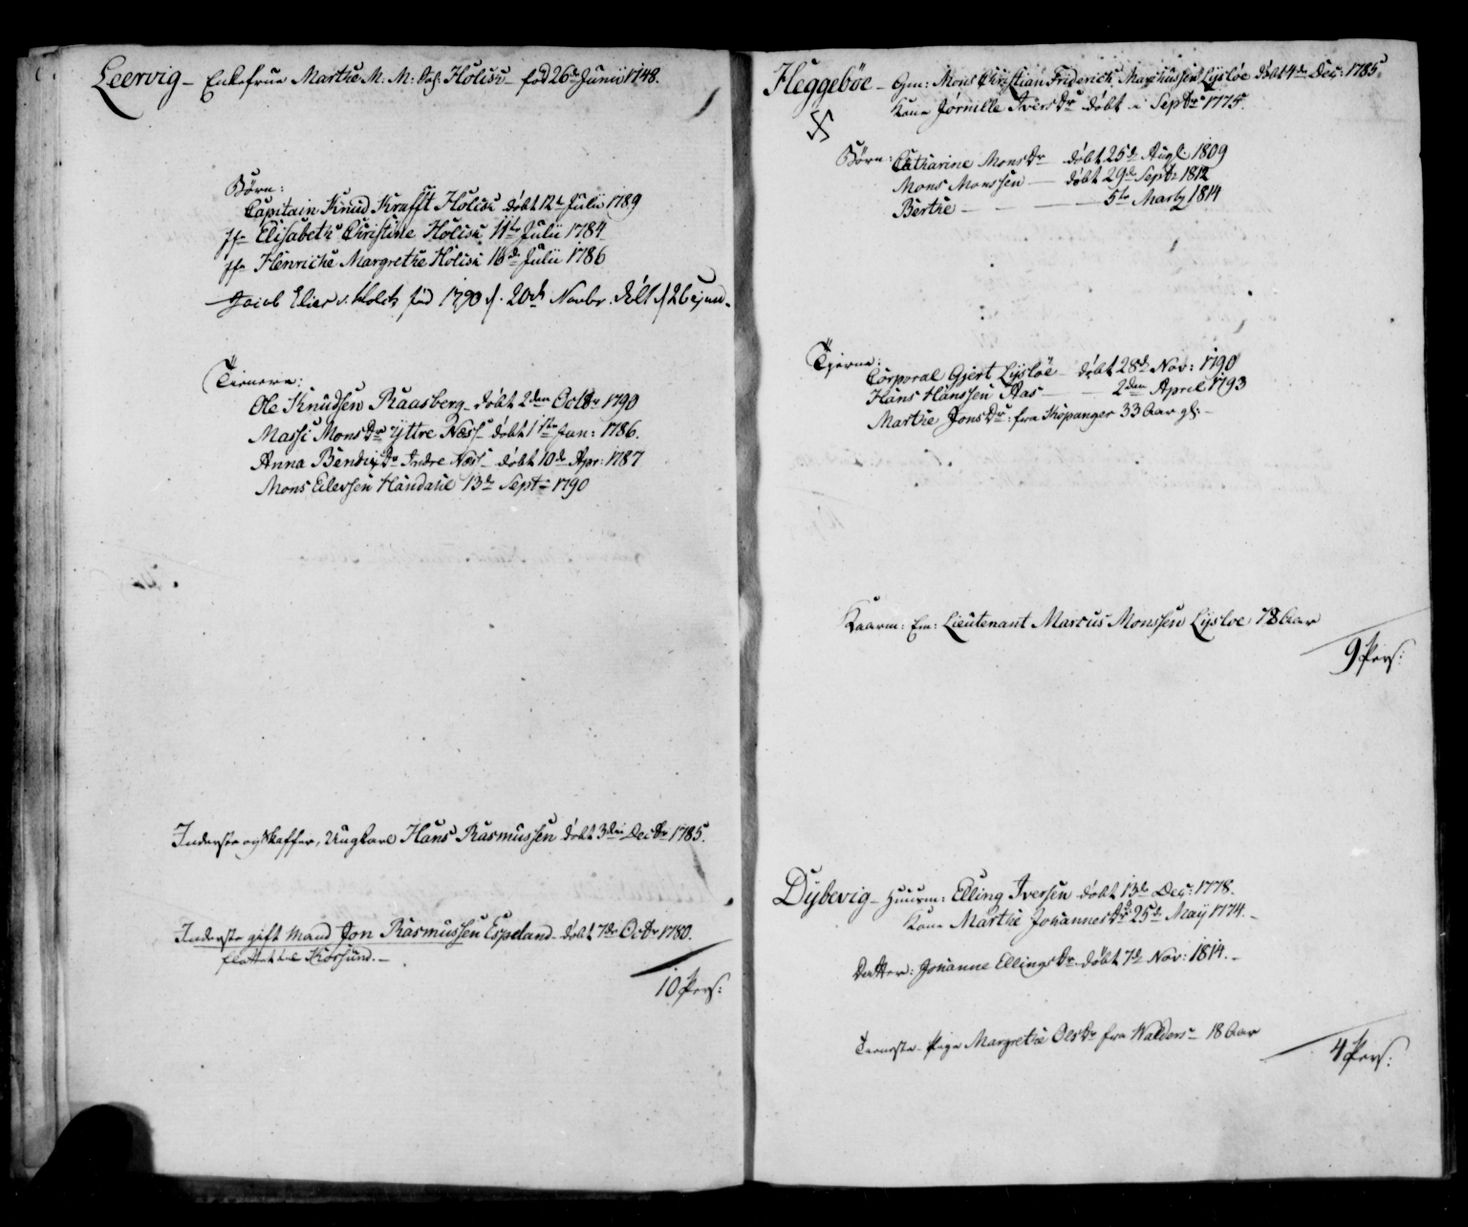 Leervig - Enkefrue Marthe M. M: Sal. Holck - fød 26de Junii 1748.
Børn:
Capitain Knud Krafft Holck døbt 12te Julii 1789
Jfr Elisabeth Christine Holck 11te Julii 1784
Jfr Henriche Margrethe Holck 16de Julii 1786
Jacob Eiler v. Holck fød 1790 d. 20de Novbr. døbt d 26 ejusd.
Tienere:
Ole Knudsen Raasberg - døbt 2den Octbr 1790
Massi Monsdr Yttre Næss - døbt 1ste Jan: 1786.
Anna Bendixdr Indre Næss - døbt 10de Apr: 1787
Mons Eilersen Handahl 13de Septr 1790
Inderste og Skaffer, Ungkarl Hans Rasmussen døbt 3die Decbr 1785.
Inderste gift Mand Jon Rasmussen Espeland - døbt 7de Octbr 1780.
fløttet til Korssund. -
10 Pers:
Heggebøe - Gjm: Mons Christian Friderich Marchussen Lysløe døbt 4de Dec: 1785.
Kone Jørnille Iversdr døbt i Septbr 1775.
Børn: Catharine Monsdr døbt 25de Aug: 1809
Mons Monssen - døbt 29de Septr 1812
Berthe - - - 5te Martz 1814
Tjenere:
Corporal Gjert Lysløe - døbt 28de Nov: 1790
Hans Hanssen Aas - - 2den April 1793
Marthe Jonsdr: fra Kopanger 33 Aar gl: -
Kaarm: Em: Lieutenant Marcus Monssen Lysloe 78 Aar
9 Pers:
Dybevig - Huusm: Elling Iversen døbt 13de Dec: 1778.
Kone Marthe Johannesdr 25de May 1774. -
Datter: Johanne Ellingsdr - døbt 7de Nov: 1814. -
Tieneste-Pige Margrethe Olsdr fra Walders - 18 Aar
4 Pers: